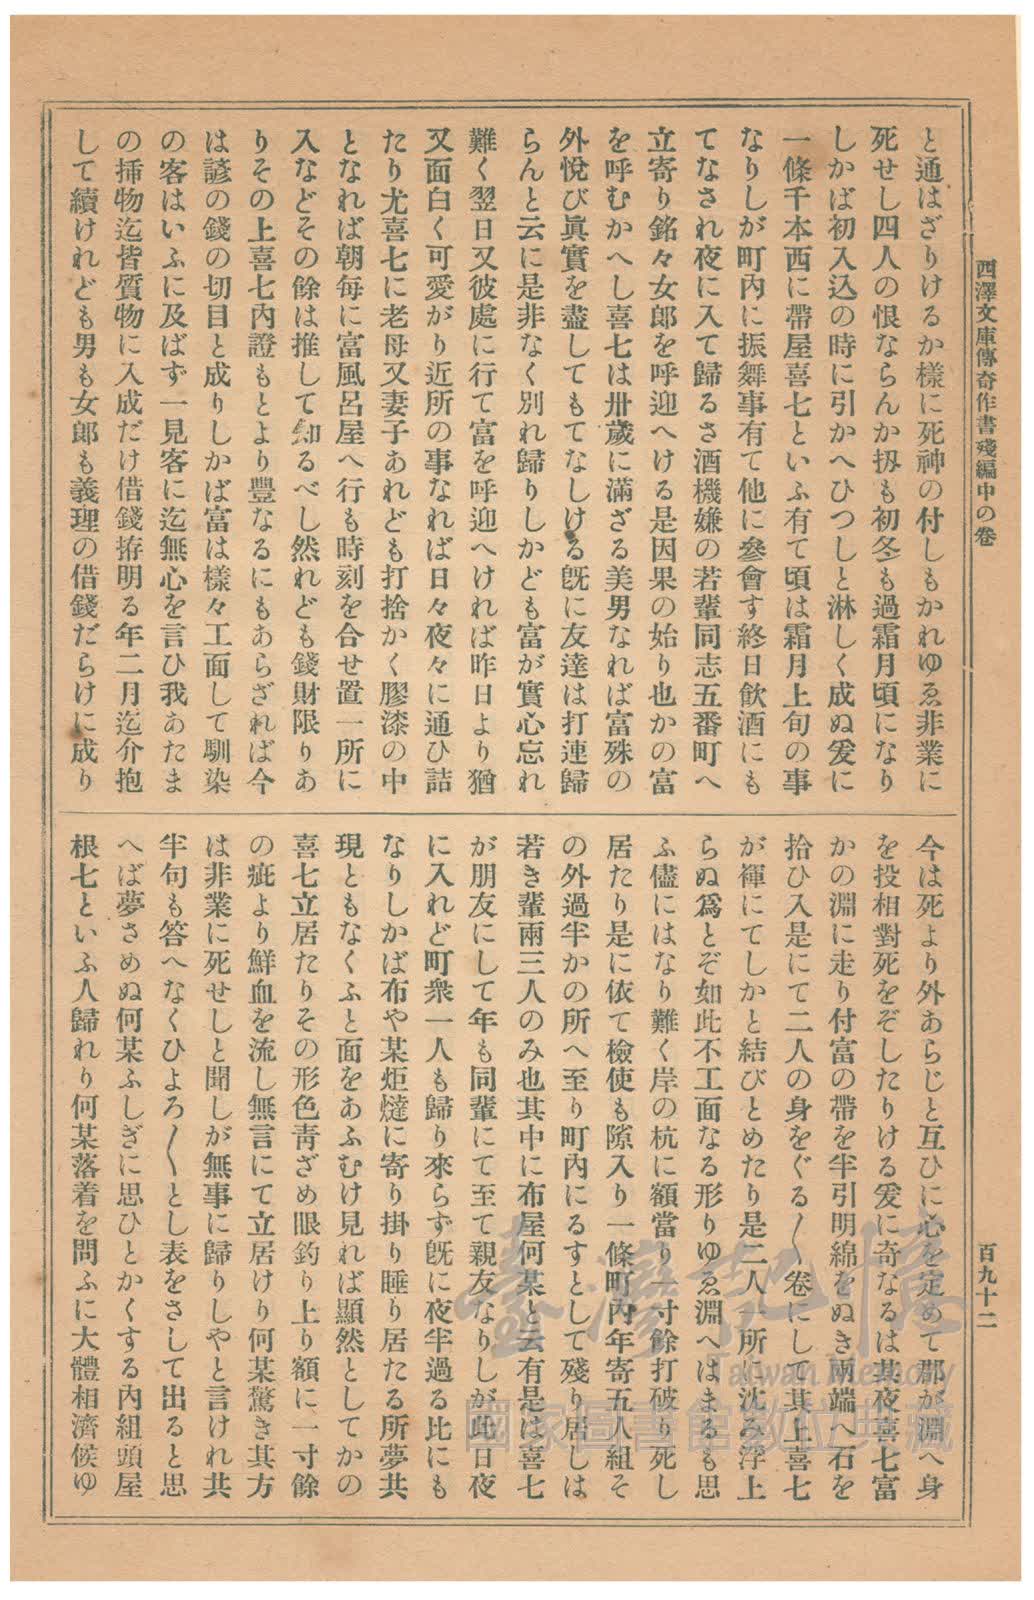 西澤文庫傳奇作書殘編中の卷
百九十二
と通はざりけるか樣に死神の付しもかれゆゑ非業に
死せし四人の恨ならんか扨も初冬も過霜月頃になり
しかば初入込の時に引かへひつしと淋しく成ぬ爰に
一條千本西に帶屋喜七といふ有て頃は霜月上旬の事
なりしが町內に振舞事有て他に參會す終日飮酒にも
てなされ夜に入て歸るさ酒機嫌の若輩同志五番町へ
立寄り銘々女郎を呼迎へける是因果の始り也かの富
を呼むかへし喜七は卅歲に滿ざる美男なれば富殊の
外悅び眞實を盡してもてなしける旣に友達は打連歸
らんと云に是非なく別れ歸りしかども富が實心忘れ
難く翌日又彼處に行て富を呼迎へければ昨日より猶
又面白く可愛がり近所の事なれば日々夜々に通ひ詰
たり尤喜七に老母又妻子あれども打捨かく膠漆の中
となれば朝每に富風呂屋へ行も時刻を合せ置一所に
入などその餘は推して知るべし然れども錢財限りあ
りその上喜七內證もとより豐なるにもあらざれば今
は諺の錢の切目と成りしかば富は樣々工面して馴染
の客はいふに及ばず一見客に迄無心を言ひ我あたま
の揷物迄皆質物に入成だけ借錢拵明る年二月迄介抱
して續けれども男も女郎も義理の借錢だらけに成り
今は死より外あらじと互ひに心を定めて郡が淵へ身
を投相對死をぞしたりける爰に奇なるは其夜喜七富
かの淵に走り付富の帶を半引明綿をぬき兩端へ石を
拾ひ入是にて二人の身をぐる〱卷にして其上喜七
が褌にてしかと結びとめたり是二人一所に沈み浮上
らぬ爲とぞ如此不工面なる形りゆゑ淵へはまるも思
ふ儘にはなり難く岸の杭に額當り一寸餘打破り死し
居たり是に依て檢使も隙入り一條町內年寄五人組そ
の外過半かの所へ至り町內にるすとして殘り居しは
若き輩兩三人のみ也其中に布屋何某と云有是は喜七
が朋友にして年も同輩にて至て親友なりしが此日夜
に入れど町衆一人も歸り來らず旣に夜半過る比にも
なりしかば布や某炬燵に寄り掛り睡り居たる所夢共
現ともなくふと面をあふむけ見れば顯然としてかの
喜七立居たりその形色靑ざめ眼釣り上り額に一寸餘
の疵より鮮血を流し無言にて立居けり何某驚き其方
は非業に死せしと聞しが無事に歸りしやと言けれ共
半句も答へなくひよろ〱とし表をさして出ると思
へば夢さめぬ何某ふしぎに思ひとかくする內組頭屋
根七といふ人歸れり何某落着を問ふに大體相濟候ゆ
臺灣記憶
Taiwan Memory
國家圖書館數位典藏